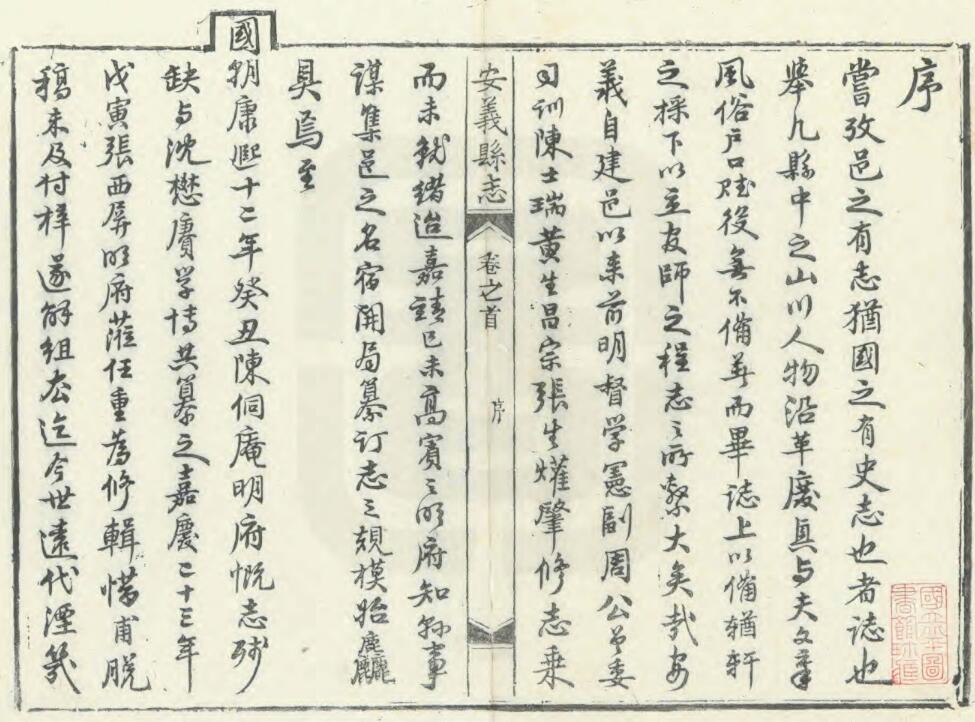 序
嘗攷邑之有志猶國之有史志也者誌也
舉凡縣中之山川人物沿革廢興與夫文章
風俗戶口賦役無不備著而畢誌上以備輶軒
之採下以立友師之程志之所繫大矣哉安
義自建邑以來前明督學憲副周公曾委
司訓陳士瑞黃生昌宗張生爟肇修志乘
安義縣志 卷之首 序
而未就緒迨嘉靖己未高賓之明府知縣事
謀集邑之名宿開局纂訂志之規模始麤
具焉至
國朝康熙十二年癸丑陳侗庵明府慨志殘
缺与沈懋賡学博共纂之嘉慶二十三年
戊寅張西屏明府蒞任重為修輯惜甫脫
稿未及付梓遂解組去迄今世遠代湮幾